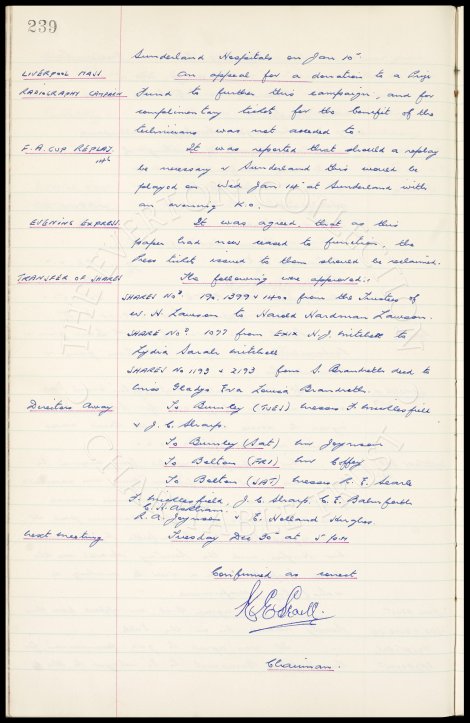 239
Sunderland Hospitals on Jan 10th.
LIVERPOOL MASS An appeal for a donation to a Prize
RADIOGRAPHY CAMPAIGN Fund to further this campaign, and for
complimentary tickets for the benefit of the
technicians was not acceded to.
F.A. CUP REPLAY It was reported that should a replay
be necessary v Sunderland this would be
played on Wed Jan 14th at Sunderland with
an evening K.O.
EVENING EXPRESS It was agreed, that as this
paper had now ceased to function, the
Press ticket issued to them should be reclaimed.
TRANSFER OF SHARES The following were approved:
SHARES Nos. 1399 & 1400 from the Trustees of
W. H. Lawson to Harold Hardman Lawson.
SHARE No. 1077 from Exix N. J. Mitchell to
Lydia Sarah Mitchell
SHARES No 1193 & 2193 from S. Brandreth decd to
Miss Gladys Eva Louisa Brandreth.
Directors Away To Burnley (TUES) Messrs F. Micklesfield
& J. C. Sharp.
To Burnley (Sat) Mr Joynson
To Bolton (FRI) Mr Coffey
To Bolton (SAT) Messrs R. F. Searle
F. Micklesfield, J. C. Sharp, C. E. Balmforth
C. H. Askham,
R. A. Joynson & E. Holland Hughes.
Next Meeting Tuesday Dec 30th at 5 pm
Confirmed as correct
Chairman.
THE EVERTON COLLECTION
CHARITABLE TRUST